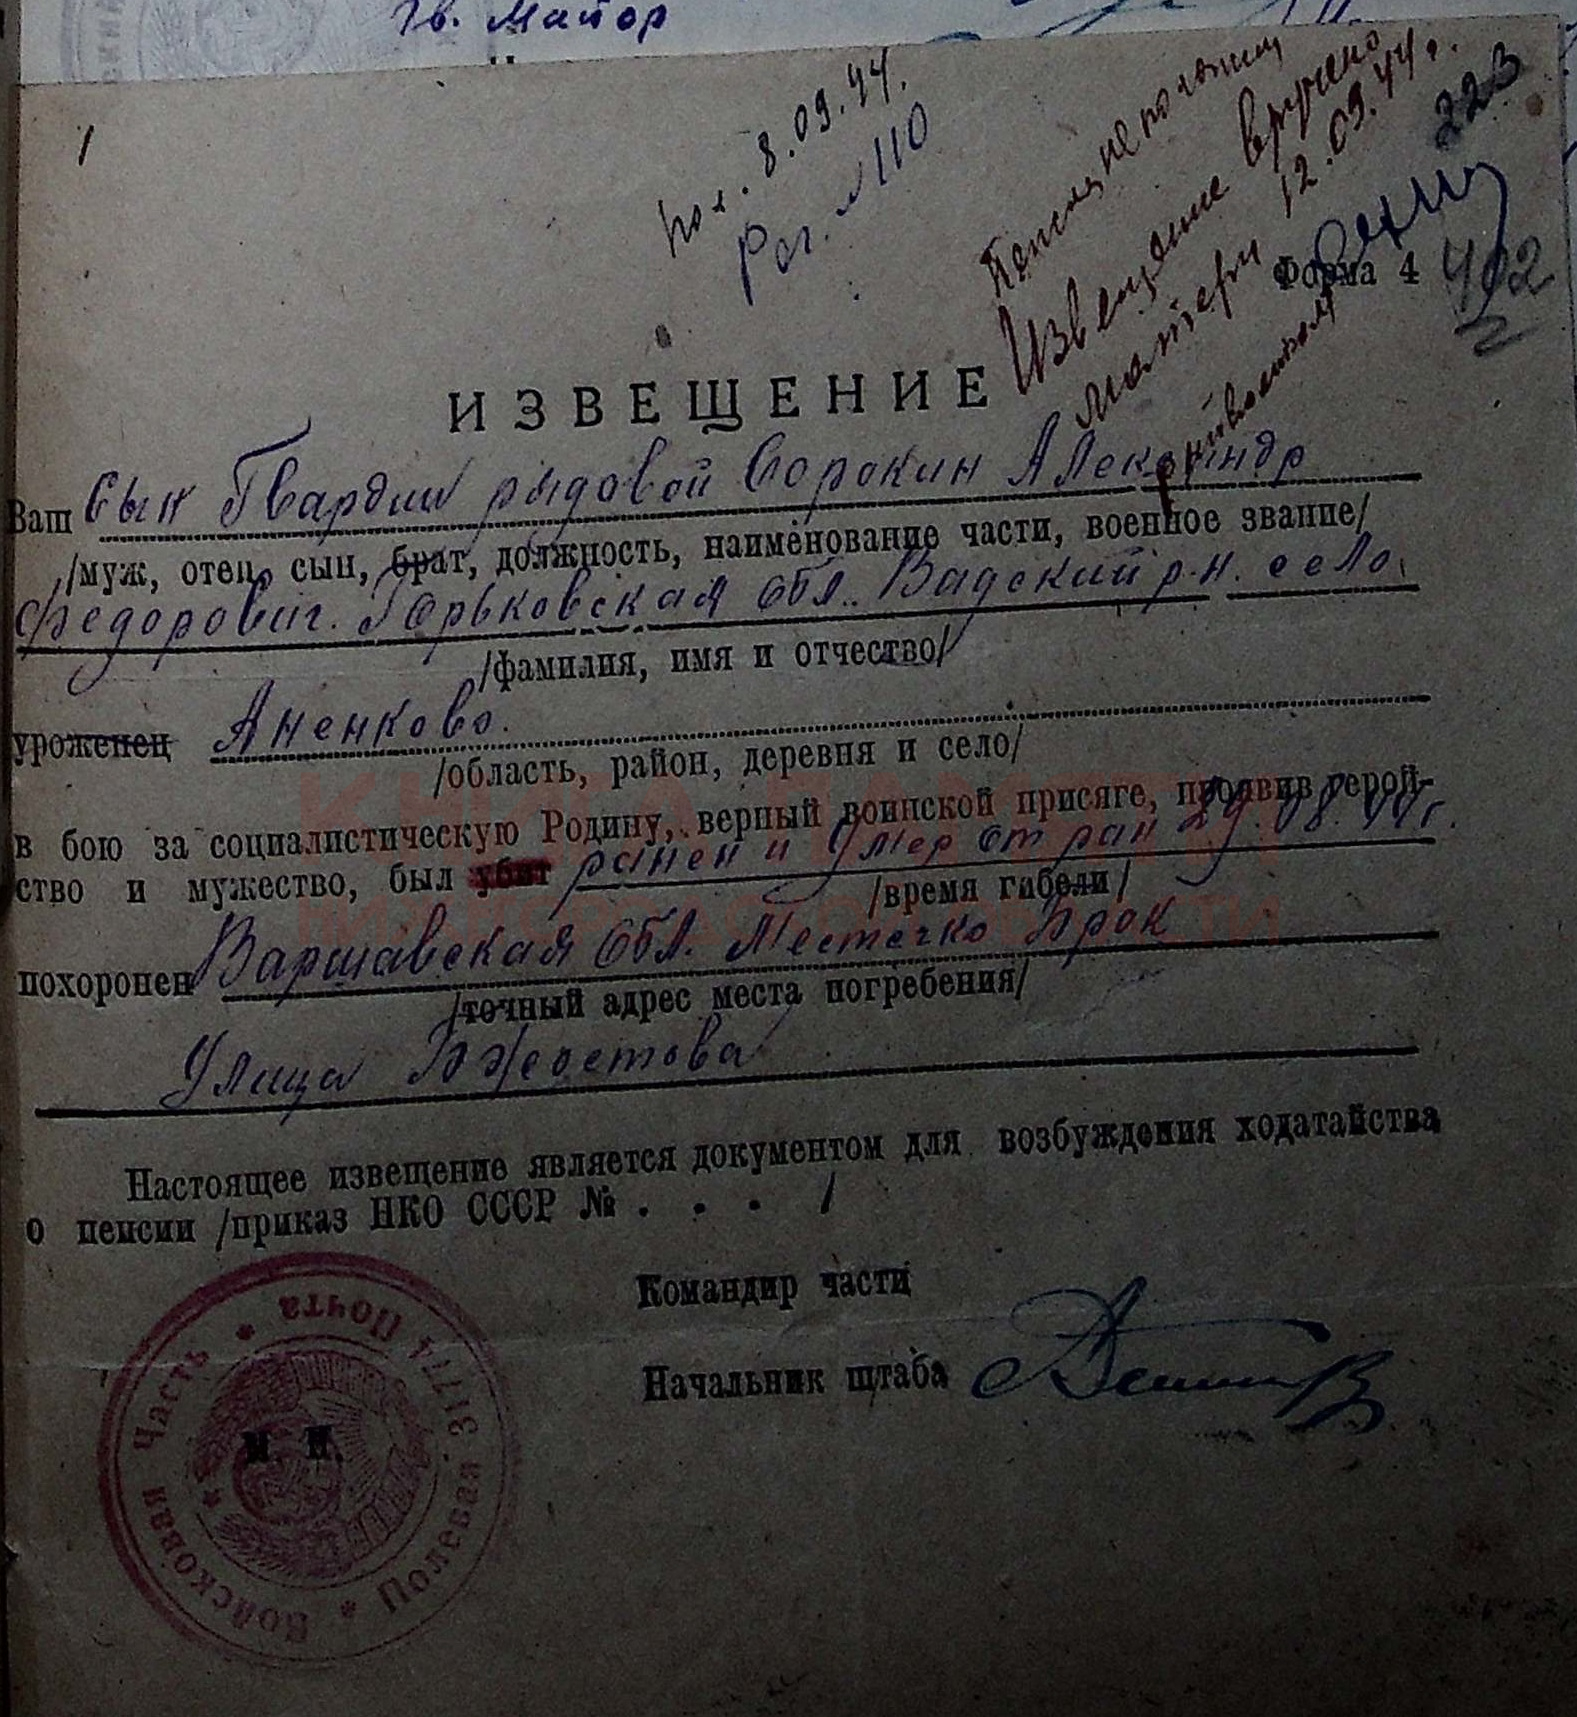 Гв. Майор
1
пол. 8.09.44.
Рег. № 110
Извещение вручено
матери 12.09.44 г.
223
Форма 4
402
ИЗВЕЩЕНИЕ
Ваш сын Гвардии рядовой Сорокин Александр
/муж, отец, сын, брат, должность, наименование части, военное звание/
Федорович. Горьковская обл. Вадский р.н. село
/фамилия, имя и отчество/
уроженец Аненково.
/область, район, деревня и село/
в бою за социалистическую Родину, верный воинской присяге, проявив герой-
ство и мужество, был убит ранен и умер от ран 29.08.44г.
/время гибели/
похоронен Варшавская обл. Местечко Брок
/точный адрес места погребения/
Улица
Настоящее извещение является документом для возбуждения ходатайства
о пенсии /приказ НКО СССР № . . . /
Командир части
Начальник штаба
М. П.
Войсковая Часть * Полевая Почта 31774 *
КНИГА ПАМЯТИ
НИЖЕГОРОДСКОЙ ОБЛАСТИ